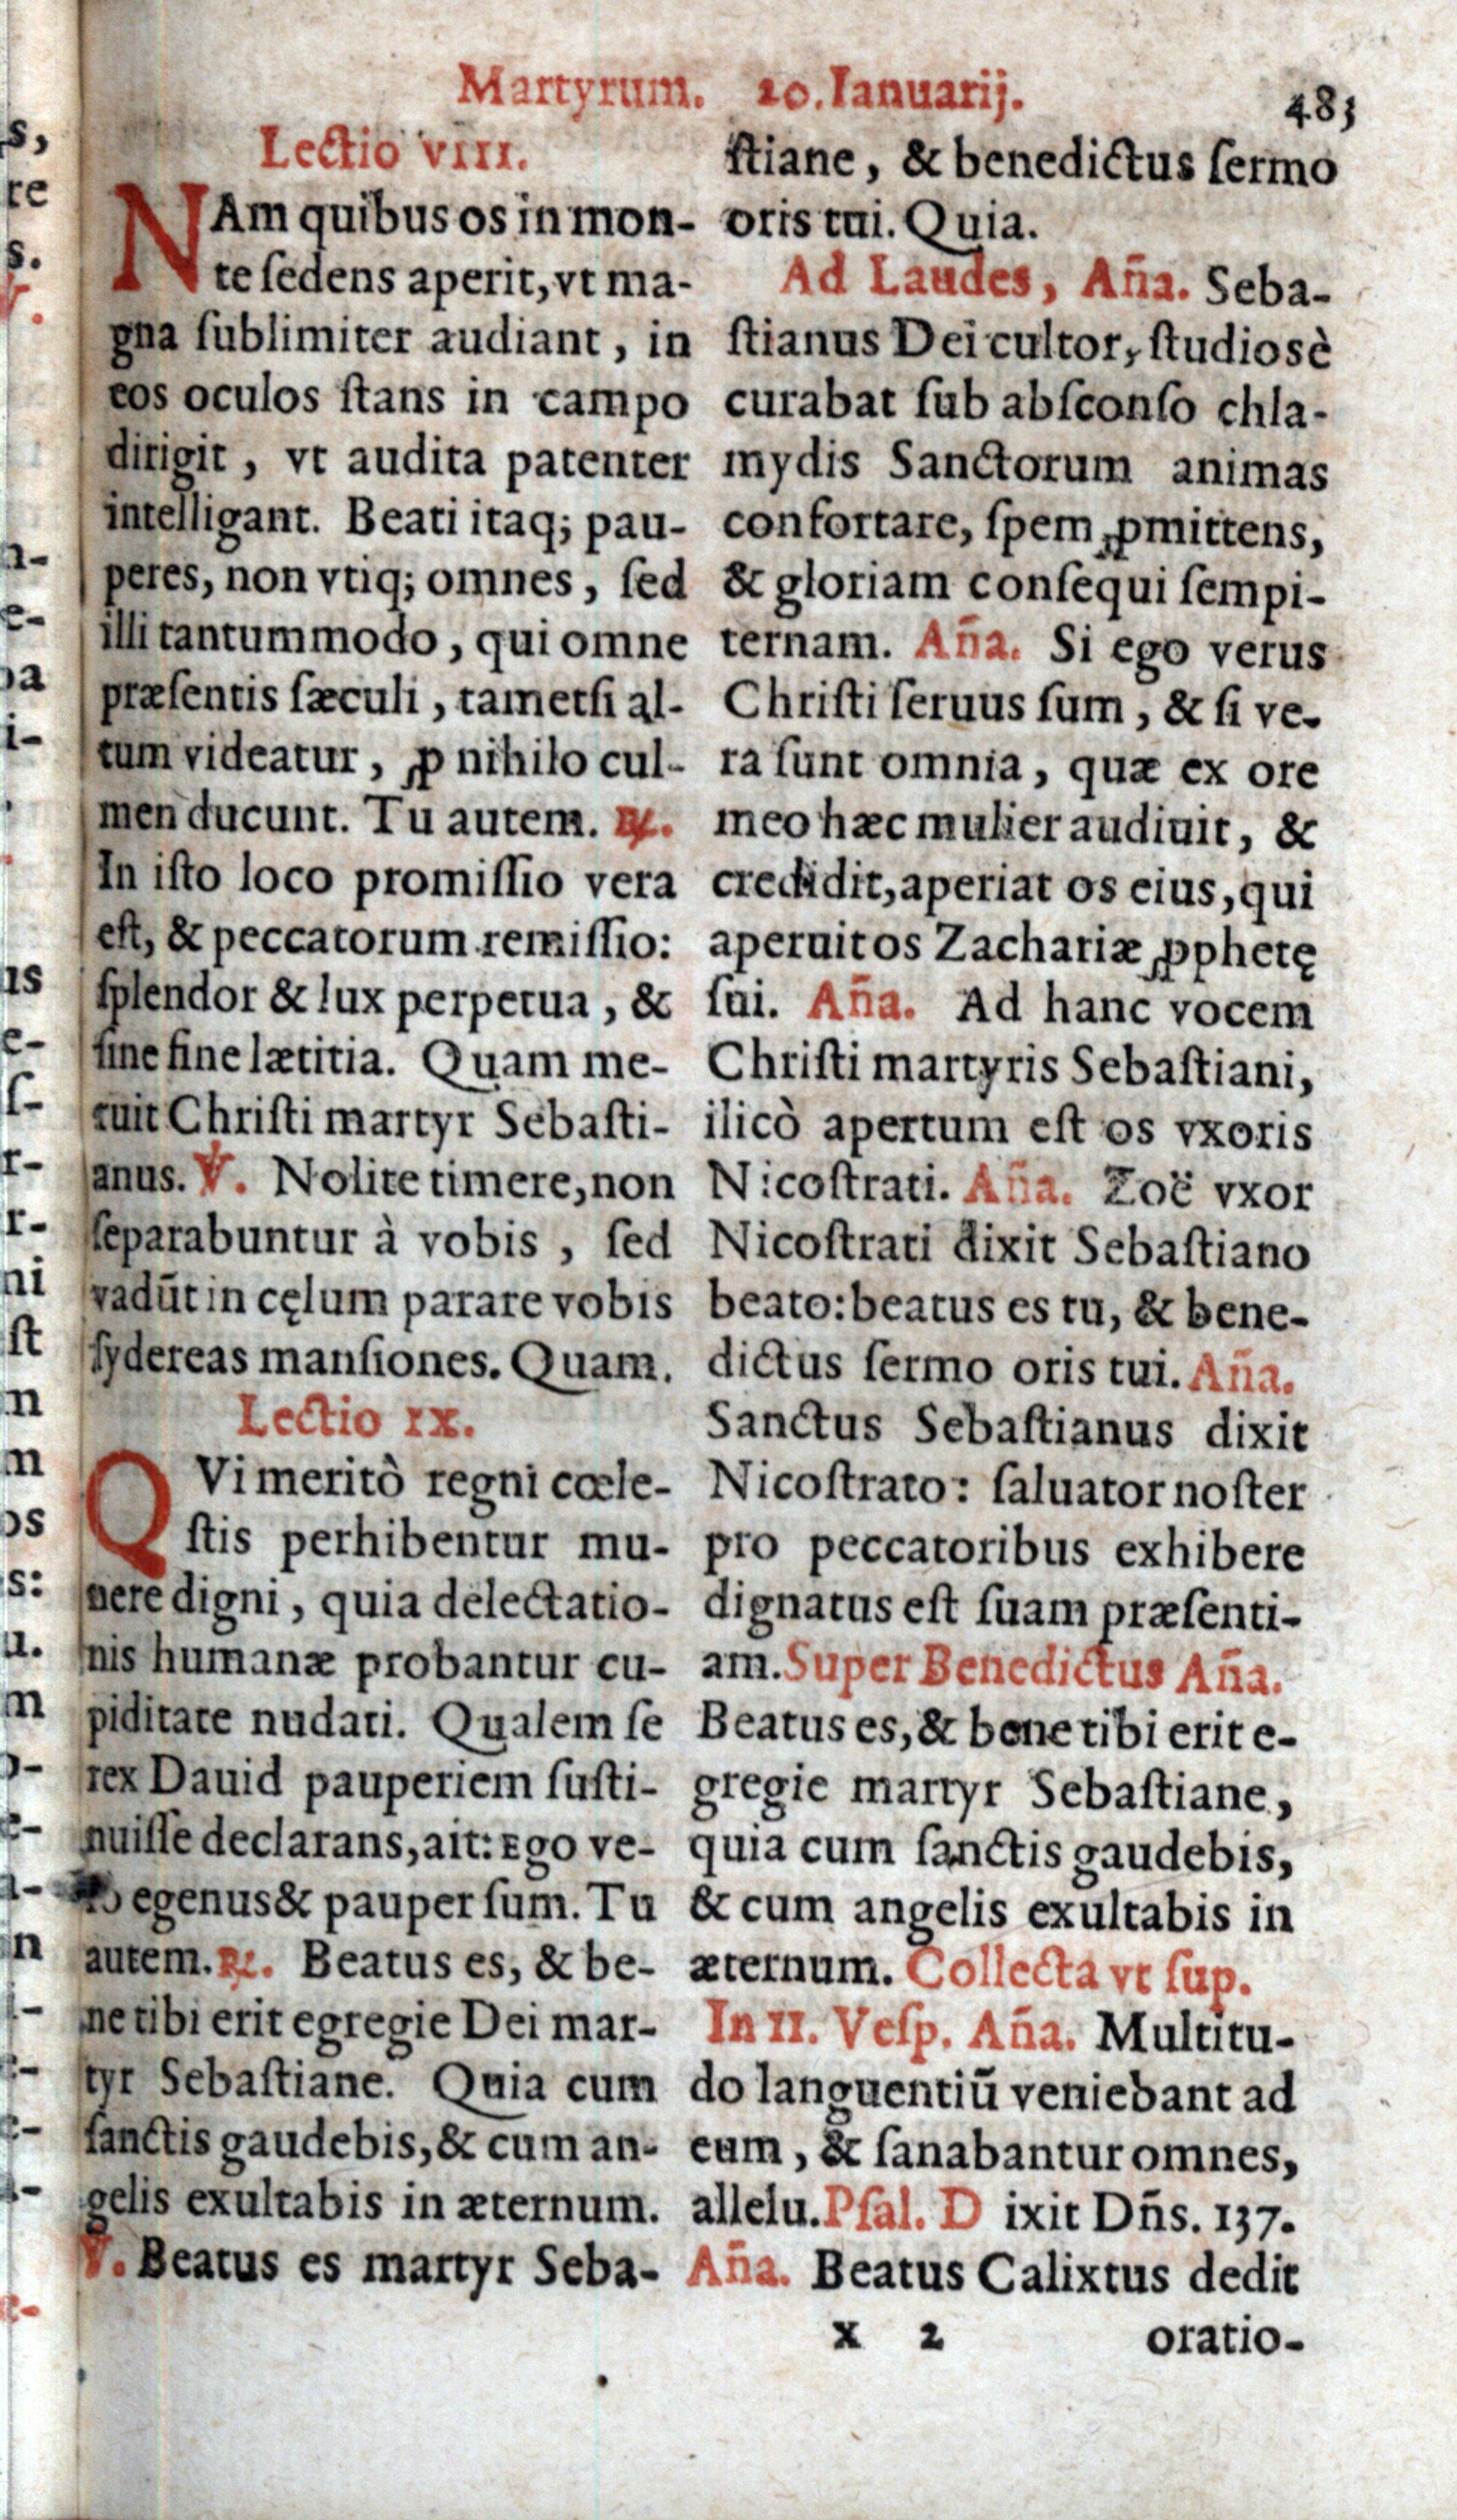 Martyrum. 20. Ianuarij. 483
Lectio VIII.
NAm quibus os in mon-
te ſedens aperit, vt ma-
gna ſublimiter audiant, in
eos oculos ſtans in campo
dirigit, vt audita patenter
intelligant. Beati itaq; pau-
peres, non vtiq; omnes, ſed
illi tantummodo, qui omne
præſentis ſæculi, tametſi al-
tum videatur, ꝓ nihilo cul-
men ducunt. Tu autem. ℟.
In iſto loco promiſſio vera
eſt, & peccatorum remiſſio:
ſplendor & lux perpetua, &
ſine fine lætitia. Quam me-
ruit Chriſti martyr Sebaſti-
anus. ℣. Nolite timere, non
ſeparabuntur à vobis, ſed
vadūt in cęlum parare vobis
ſydereas manſiones. Quam.
Lectio IX.
QVi meritò regni cœle-
ſtis perhibentur mu-
nere digni, quia delectatio-
nis humanæ probantur cu-
piditate nudati. Qualem ſe
rex Dauid pauperiem ſuſti-
nuiſſe declarans, ait: Ego ve-
egenus & pauper ſum. Tu
autem. ℟. Beatus es, & be-
ne tibi erit egregie Dei mar-
tyr Sebaſtiane. Quia cum
ſanctis gaudebis, & cum an-
gelis exultabis in æternum.
℣. Beatus es martyr Seba-
ſtiane, & benedictus ſermo
oris tui. Quia.
Ad Laudes, Aña. Seba-
ſtianus Dei cultor, ſtudiosè
curabat ſub abſconſo chla-
mydis Sanctorum animas
confortare, ſpem ꝓmittens,
& gloriam conſequi ſempi-
ternam. Aña. Si ego verus
Chriſti ſeruus ſum, & ſi ve-
ra ſunt omnia, quæ ex ore
meo hæc mulier audiuit, &
credidit, aperiat os eius, qui
aperuit os Zachariæ ꝓphetę
ſui. Aña. Ad hanc vocem
Chriſti martyris Sebaſtiani,
ilicò apertum eſt os vxoris
Nicoſtrati. Aña. Zoë vxor
Nicoſtrati dixit Sebaſtiano
beato: beatus es tu, & bene-
dictus ſermo oris tui. Aña.
Sanctus Sebaſtianus dixit
Nicoſtrato: ſaluator noſter
pro peccatoribus exhibere
dignatus eſt ſuam præſenti-
am. Super Benedictus Aña.
Beatus es, & bene tibi erit e-
gregie martyr Sebaſtiane,
quia cum ſanctis gaudebis,
& cum angelis exultabis in
æternum. Collecta vt ſup.
In II. Veſp. Aña. Multitu-
do languentiū veniebant ad
eum, & ſanabantur omnes,
allelu. Pſal. D ixit Dñs. 137.
Aña. Beatus Calixtus dedit
x 2 oratio-